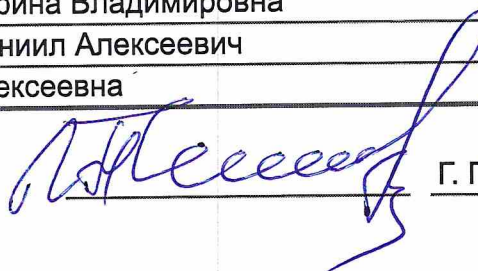 рина Владимировна
ниил Алексеевич
ексеевна
Г. Г